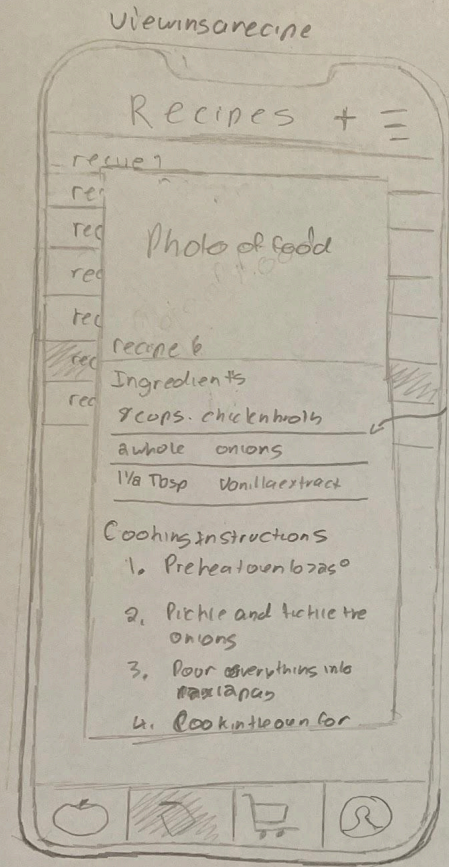 Viewinsarecipe
Recipes + ≡
recue 1
re
rec
rec
rec
rec
rec
Photo of food
recipe 6
Ingredients
8 cops. chickenbroth
2 whole onions
1 1/8 Tbsp Vanillaextract
Cooking Instructions
1. Preheat oven to 325°
2. Pickle and tickle the
onions
3. Pour everything into
a pan
4. Cook in the oven for